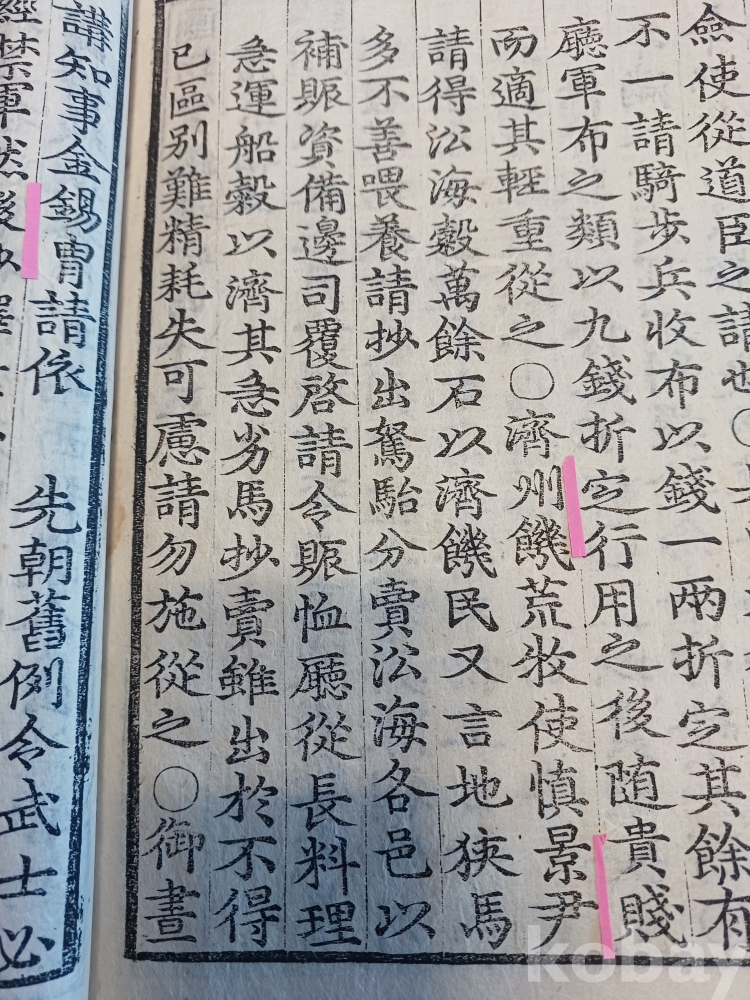 僉使從道臣之請也〇
不一請騎步兵收布以錢一兩折定其餘有
廳軍布之類以九錢折定行用之後随貴賤
而適其輕重從之〇濟州饑荒牧使慎景尹
請得㳂海穀萬餘石以濟饑民又言地狹馬
多不善喂養請抄出駑駘分賣㳂海各邑以
補賑資備邊司覆啓請令賑恤廳從長料理
急運船穀以濟其急劣馬抄賣雖出於不得
已區别難精耗失可慮請勿施從之〇御晝
講知事金錫胄請依 先朝舊例令武士必
經禁軍然後
kobay